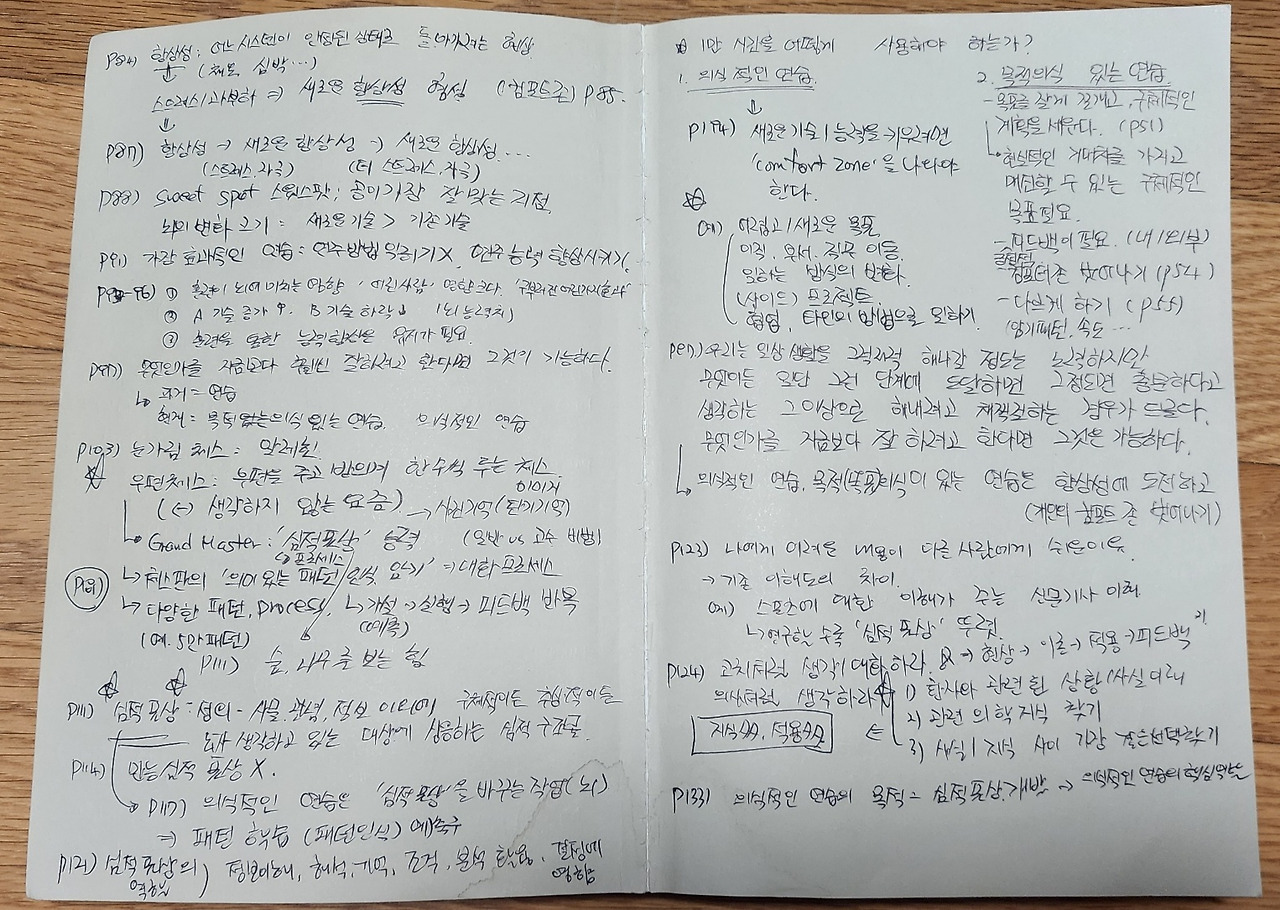 P84) 항상성: 어느 시스템이 안정된 상태로 돌아가려는 현상
(체온, 심박…)
스트레스/과부하 ⇒ 새로운 항상성 형성 (컴포트존) P85.
P87) 항상성 → 새로운 항상성 → 새로운 항상성…
(스트레스, 자극) (더 스트레스, 자극)
P88) sweet spot 스윗스팟: 공이 가장 잘 맞는 지점
뇌의 변화 크기 = 새로운 기술 > 기존 기술
P91) 가장 효과적인 연습: 연주방법 익히기 X, 연주 능력 향상시키기.
① 훈련이 뇌에 미치는 영향 '어린사람' 영향 크다. '구부러진 어린가지효과'
② A 기술 증가 ↑, B 기술 하락↓ (뇌능력치)
③ 훈련을 통한 능력향상은 유지가 필요.
P97) 무엇인가를 지금보다 훨씬 잘하려고 한다면 그것이 가능하다.
과거 = 연습
현재 = 목적있는의식 있는 연습 의식적인 연습
P103) 눈가림 체스: 알레힌
우편체스: 우편을 주고 받으며 한수씩 두는 체스
(↔ 생각하지 않는 요즘) → 사진기억 (단기기억)
이미지
Grand Master: '심적표상' 능력 (일반 vs 고수 비법)
프로세스
↳ 체스판의 '의미있는 패턴/인식, 암기' ⇒ 대화 프로세스
↳ 다양한 패턴, process, ↳ 가설 → 실행 → 피드백 반복
(예. 5만패턴) (예측)
P111) 숲, 나무를 보는 힘
P111) 심적 표상: 정의 - 사물, 관념, 정보 이외에 구체적이든 추상적이든
뇌가 생각하고 있는 대상에 상응하는 심적 구조물.
P114) 만능 심적 표상 X.
P117) 의식적인 연습은 '심적표상'을 바꾸는 작업(뇌)
⇒ 패턴 학습 (패턴인식) 예)축구
P121) 심적 표상의 역할) 정보이해, 해석, 기억, 조직, 분석 활용, 결정에
영향
1만 시간을 어떻게 사용해야 하는가?
1. 의식적인 연습
P174) 새로운 기술/능력을 키우려면
'comfort zone'을 나와야
한다.
☆
예) 어렵고/새로운 목표
이직, 부서, 직무 이동
일하는 방식의 변화.
(사이드) 프로젝트.
협업, 타인의 방법으로 일하기.
2. 목적의식 있는 연습
- 목표를 잘게 쪼개고, 구체적인
계획을 세운다. (P51)
현실적인 기대치를 가지고
매진할 수 있는 구체적인
목표 필요.
- 피드백이 필요. (내/외부)
긍정적
- 컴포터존 벗어나기 (P54)
- 다르게 하기 (P55)
(암기패턴, 속도…
P97) 우리는 일상생활을 그럭저럭 해나갈 정도는 노력하지만
무엇이든 일단 그런 단계에 도달하면 그정도면 충분하다고
생각하는 그 이상으로 해내려고 채찍질하는 경우가 드물다.
무엇인가를 지금보다 잘 하려고 한다면 그것은 가능하다.
의식적인 연습, 목적(목표)의식이 있는 연습은 항상성에 도전하고
(개인의 컴포트 존 벗어나기)
P123) 나에게 어려운 내용이 다른 사람에게 쉬운 이유.
→ 기존 이해도의 차이.
예) 스포츠에 대한 이해가 주는 신문기사 이해
↳ 연구할 수록 '심적 표상' 뚜렷.
P124) 코치처럼 생각/대화하라. → 현상 → 이론 → 적용 → 피드백
의사처럼 생각하라
1) 환자와 관련한 상황/사실 이해
2) 관련 의학지식 찾기
3) 사실/지식 사이 가장 같은 선택 찾기
P133) 의식적인 연습의 목적 = 심적표상, 개발 → 의식적인 연습의 핵심역할은